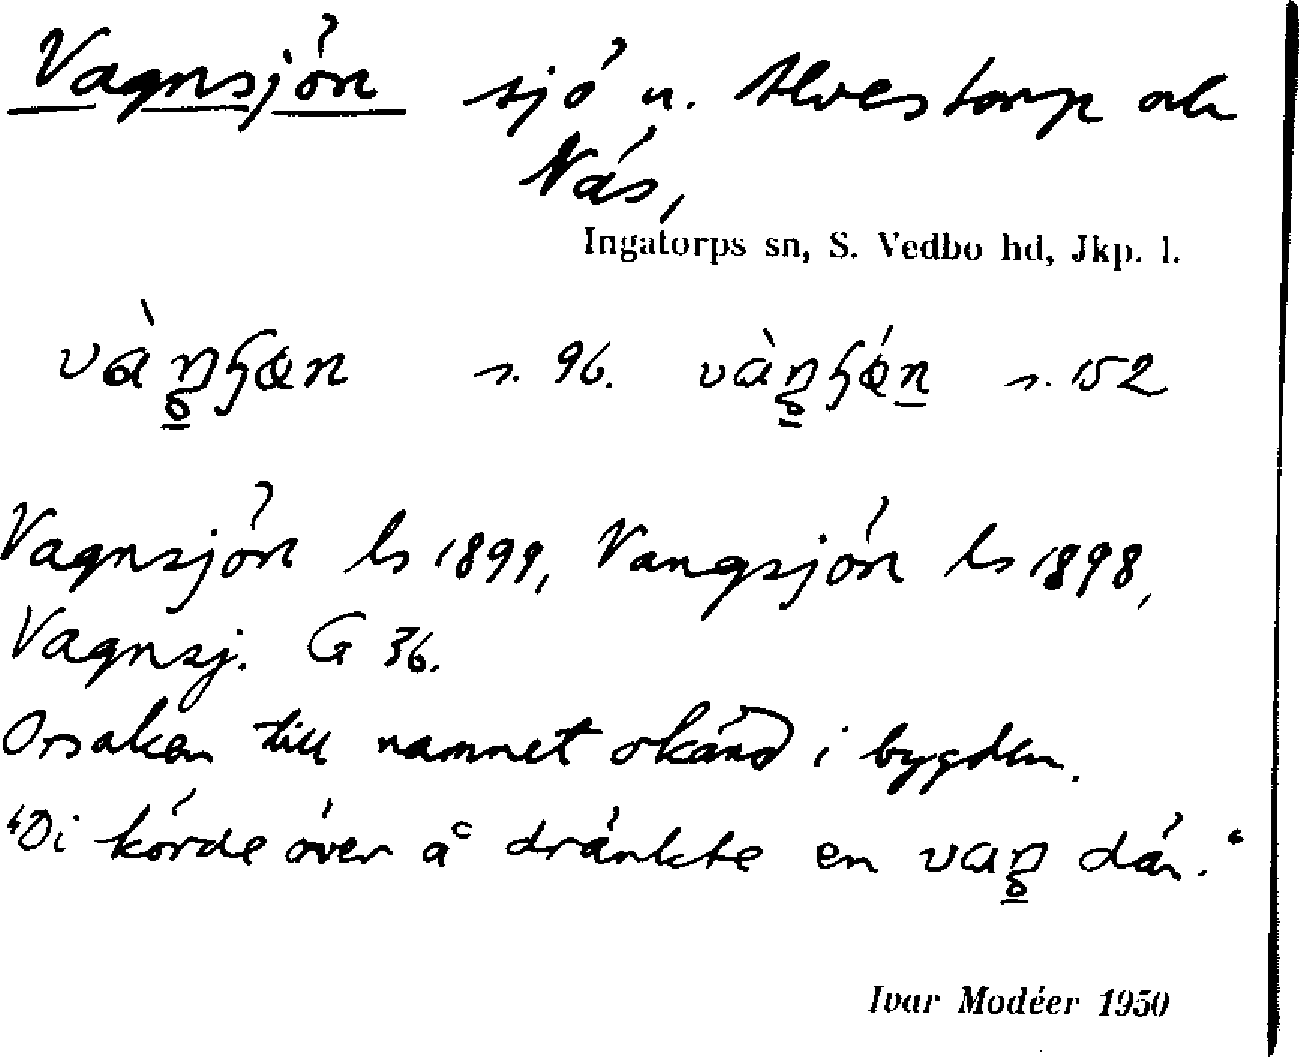 Vagnsjön sjö n. Alvestorp och
Näs,
Ingatorps sn, S. Vedbo hd, Jkp. l.
s. 96. s. 152
Vagnsjön ls 1899, Vangsjön ls 1898,
Vagnsj. G 36.
Orsaken till namnet okänd i bygden.
"Di körde över å dränkte en vaŋ där."
Ivar Modéer 1950